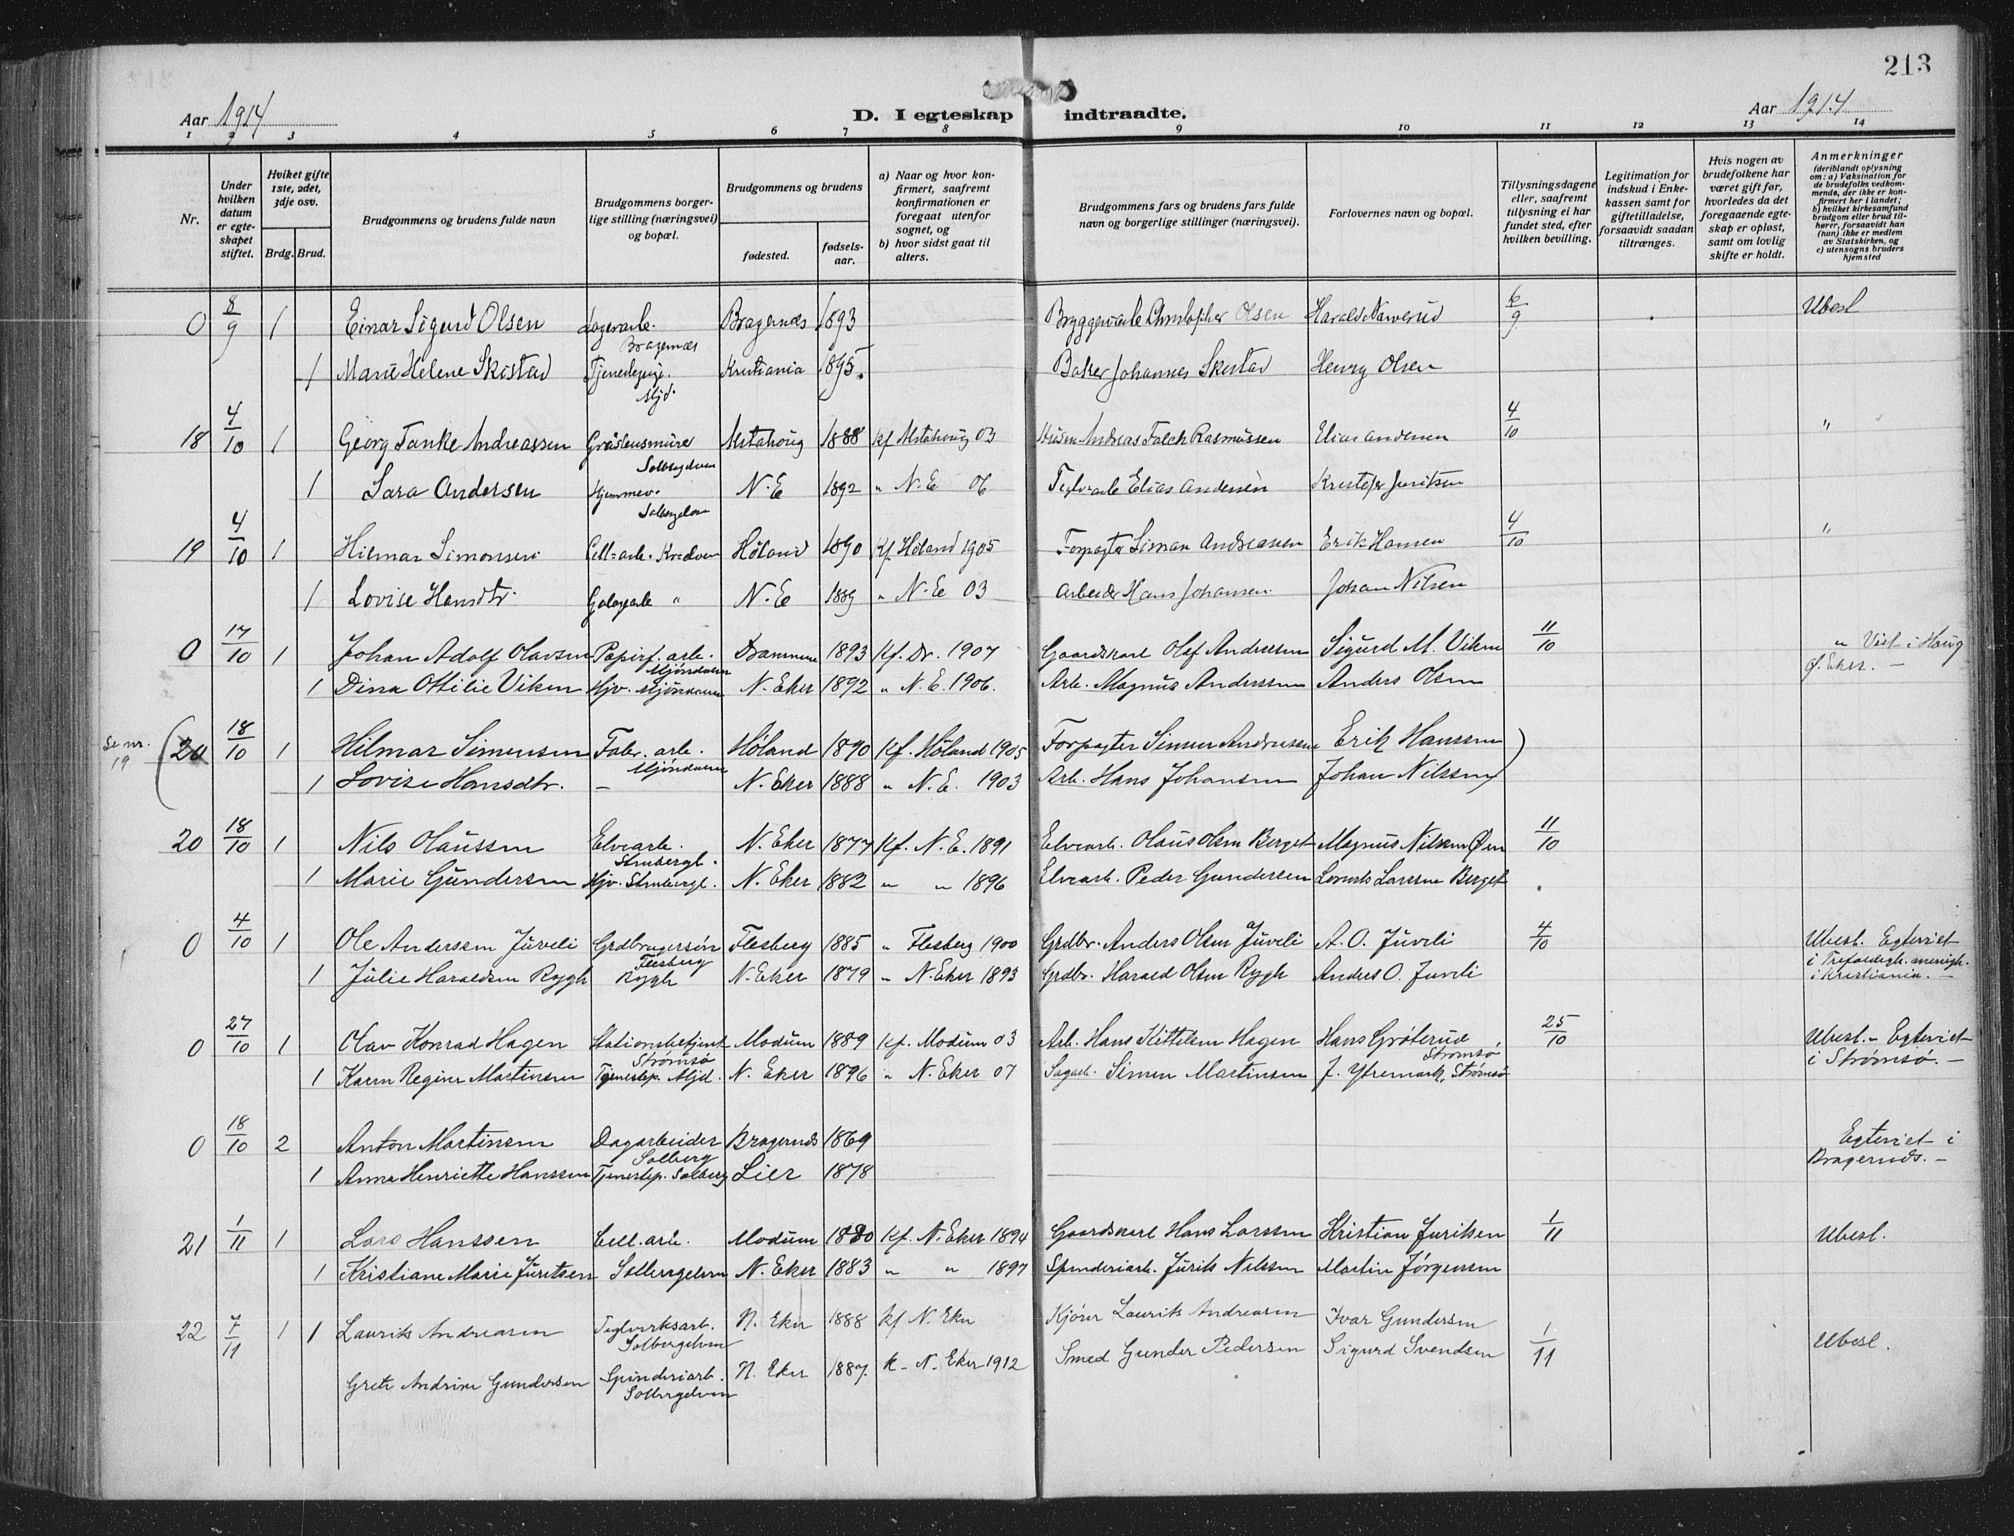 213
Aar 1914
D. I egteskap indtraadte.
Aar 1914
1 2 3 4 5 6 7 8 9 10 11 12 13 14
Nr.
Under hvilken datum er egteskapet stiftet.
Hviket gifte 1ste, 2det, 3dje osv.
Brdg. Brud.
Brudgommens og brudens fulde navn
Brudgommens borgerlige stilling (næringsvei) og bopæl.
Brudgommens og brudens
fødested.
fødselsaar.
a) Naar og hvor konfirmert, saafremt konfirmationen er foregaat utenfor sognet, og
b) hvor sidst gaat til alters.
Brudgommens fars og brudens fars fulde navn og borgerlige stillinger (næringsvei).
Forlovernes navn og bopæl.
Tillysningsdagene eller, saafremt tillysning ei har fundet sted, efter hvilken bevilling.
Legitimation for indskud i Enkekassen samt for giftetilladelse, forsaavidt saadan tiltrænges.
Hvis nogen av brudefolkene har været gift før, hvorledes da det foregaaende egteskap er opløst, samt om lovlig skifte er holdt.
Anmerkninger (deriblandt oplysning om: a) Vaksination for de brudefolks vedkommende, der ikke er konfirmert her i landet; b) hvilket kirkesamfund brudgom eller brud tilhører, forsaavidt han (hun) ikke er medlem av Statskirken, og c) utensogns bruders hjemsted
0 8/9 1 Einar Sigurd Olsen Lagerarb. Bragernæs Bragernæs 1893 Bryggeriarb Christopher Olsen Harald Narverud 6/9 Ubesl
1 Marie Helene Skistad Tjenestepige. Mjd. Kristiania 1895. Baker Johannes Skistad Henry Olsen
18 4/10 1 Georg Tanke Andreassen Gråstensmurer Solbergelven Alstahoug 1888 kf Alstahoug 03 Andreas Falch Rasmussen Elias Andersen 4/10 "
1 Sara Andersen Hjemmev. Solbergelven N.E 1892 " N.E 06 Teglverarb Elias Andersen Kristofer Juritsen
19 4/10 1 Hilmar Simonsen Cell=arb. Høland 1890 Kf. Høland 1905 Forpagter Simon Andreasen Erik Hansen 4/10 "
1 Lovise Hansdtr. " N.E 1889 " N.E 03 Arbeider Hans Johansen. Johan Nilsen
0 17/10 1 Johan Adolf Olavsen Papirf. arb. Mjøndalen Drammen 1893 Kf. Dr. 1907 Gaardskarl Olaf Andersen Sigurd M. Viken 11/10 " Viet i Haug Ø. Eker. —
1 Dina Ottilie Viken Hjv. Mjøndalen N. Eker 1892 " N.E. 1906. Arb. Magnus Andersen Anders Olsen
Se nr. 19 (20 18/10 1 Hilmar Simensen Fabr. arb. Mjøndalen Høland 1890 Kf. Høland 1905 Forpagter Simen Andreassen Erik Hanssen )
1 Lovise Hansdtr. — N. Eker 1888 " N.E. 1903 Arb. Hans Johansen Johan Nilssen
20 18/10 1 Nils Olaussen Elvearb. Stenbergl. N. Eker 1877 Kf. N.E. 1891 Elvearb. Olaus Olsen Berget Magnus Nilsen Øen 11/10
1 Marie Gundersen Hjv. Stenbergl. N. Eker 1882 " " 1896 Elvearb. Peder Gundersen Larssen Berget
0 4/10 1 Ole Anderssen Juveli Grdbrugersøn Flesberg Flesberg 1885 " Flesberg 1900 Grdbr. Anders Olsen Juveli A. O. Juveli 4/10 Ubesl. Egteviet i Trefoldigh. menigh. i Kristiania. —
1 Julie Haraldsen Rygh Rygh N. Eker 1879 " N. Eker 1893 Grdbr. Harald Olsen Rygh Anders O. Juveli
0 27/10 1 Olav Konrad Hagen Stationsbetjent Strømsø Modum 1889 Kf. Modum 03 Arb. Hans Kittelsen Hagen Hans Grøterud Strømsø 25/10 Ubesl. - Egteviet i Strømsø. —
1 Karen Regine Martinsen Tjenestep. Mjd. N. Eker 1896 " N. Eker 07 Sagarb. Simen Martinsen J. Ytremark, Strømsø
0 18/10 2 Anton Martinsen Dagarbeider Solberg Bragernæs 1869 — Egteviet i Bragernæs. —
1 Anna Henriette Hanssen Tjenestep. Solberg Lier 1878
21 1/11 1 Lars Hanssen Cell. arb. Modum 1880 Kf. N. Eker 1894 Gaardskarl Hans Larssen Kristian Juritsen 1/11 Ubesl.
1 Kristiane Marie Juritsen Solbergelven N. Eker 1883 " " 1897 Spinderiarb. Jurits Nilssen Martin Jørgensen
22 7/11 1 1 Laurits Andreasen Teglverksarb. Solbergelven N. Eker 1888 kf N. Eker Kjører Laurits Andreasen Ivar Gundersen 1/11 Ubesl.
Grete Andrine Gundersen Spinderiarb. Solbergelven N. Eker 1887. k - N. Eker 1912 Smed Gunder Pedersen Sigurd Svendsen